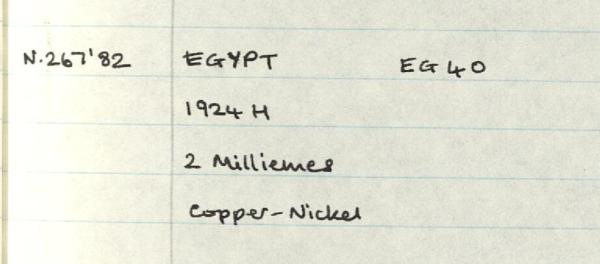 N.267'82 EGYPT EG 40
1924 H
2 Milliemes
Copper-Nickel